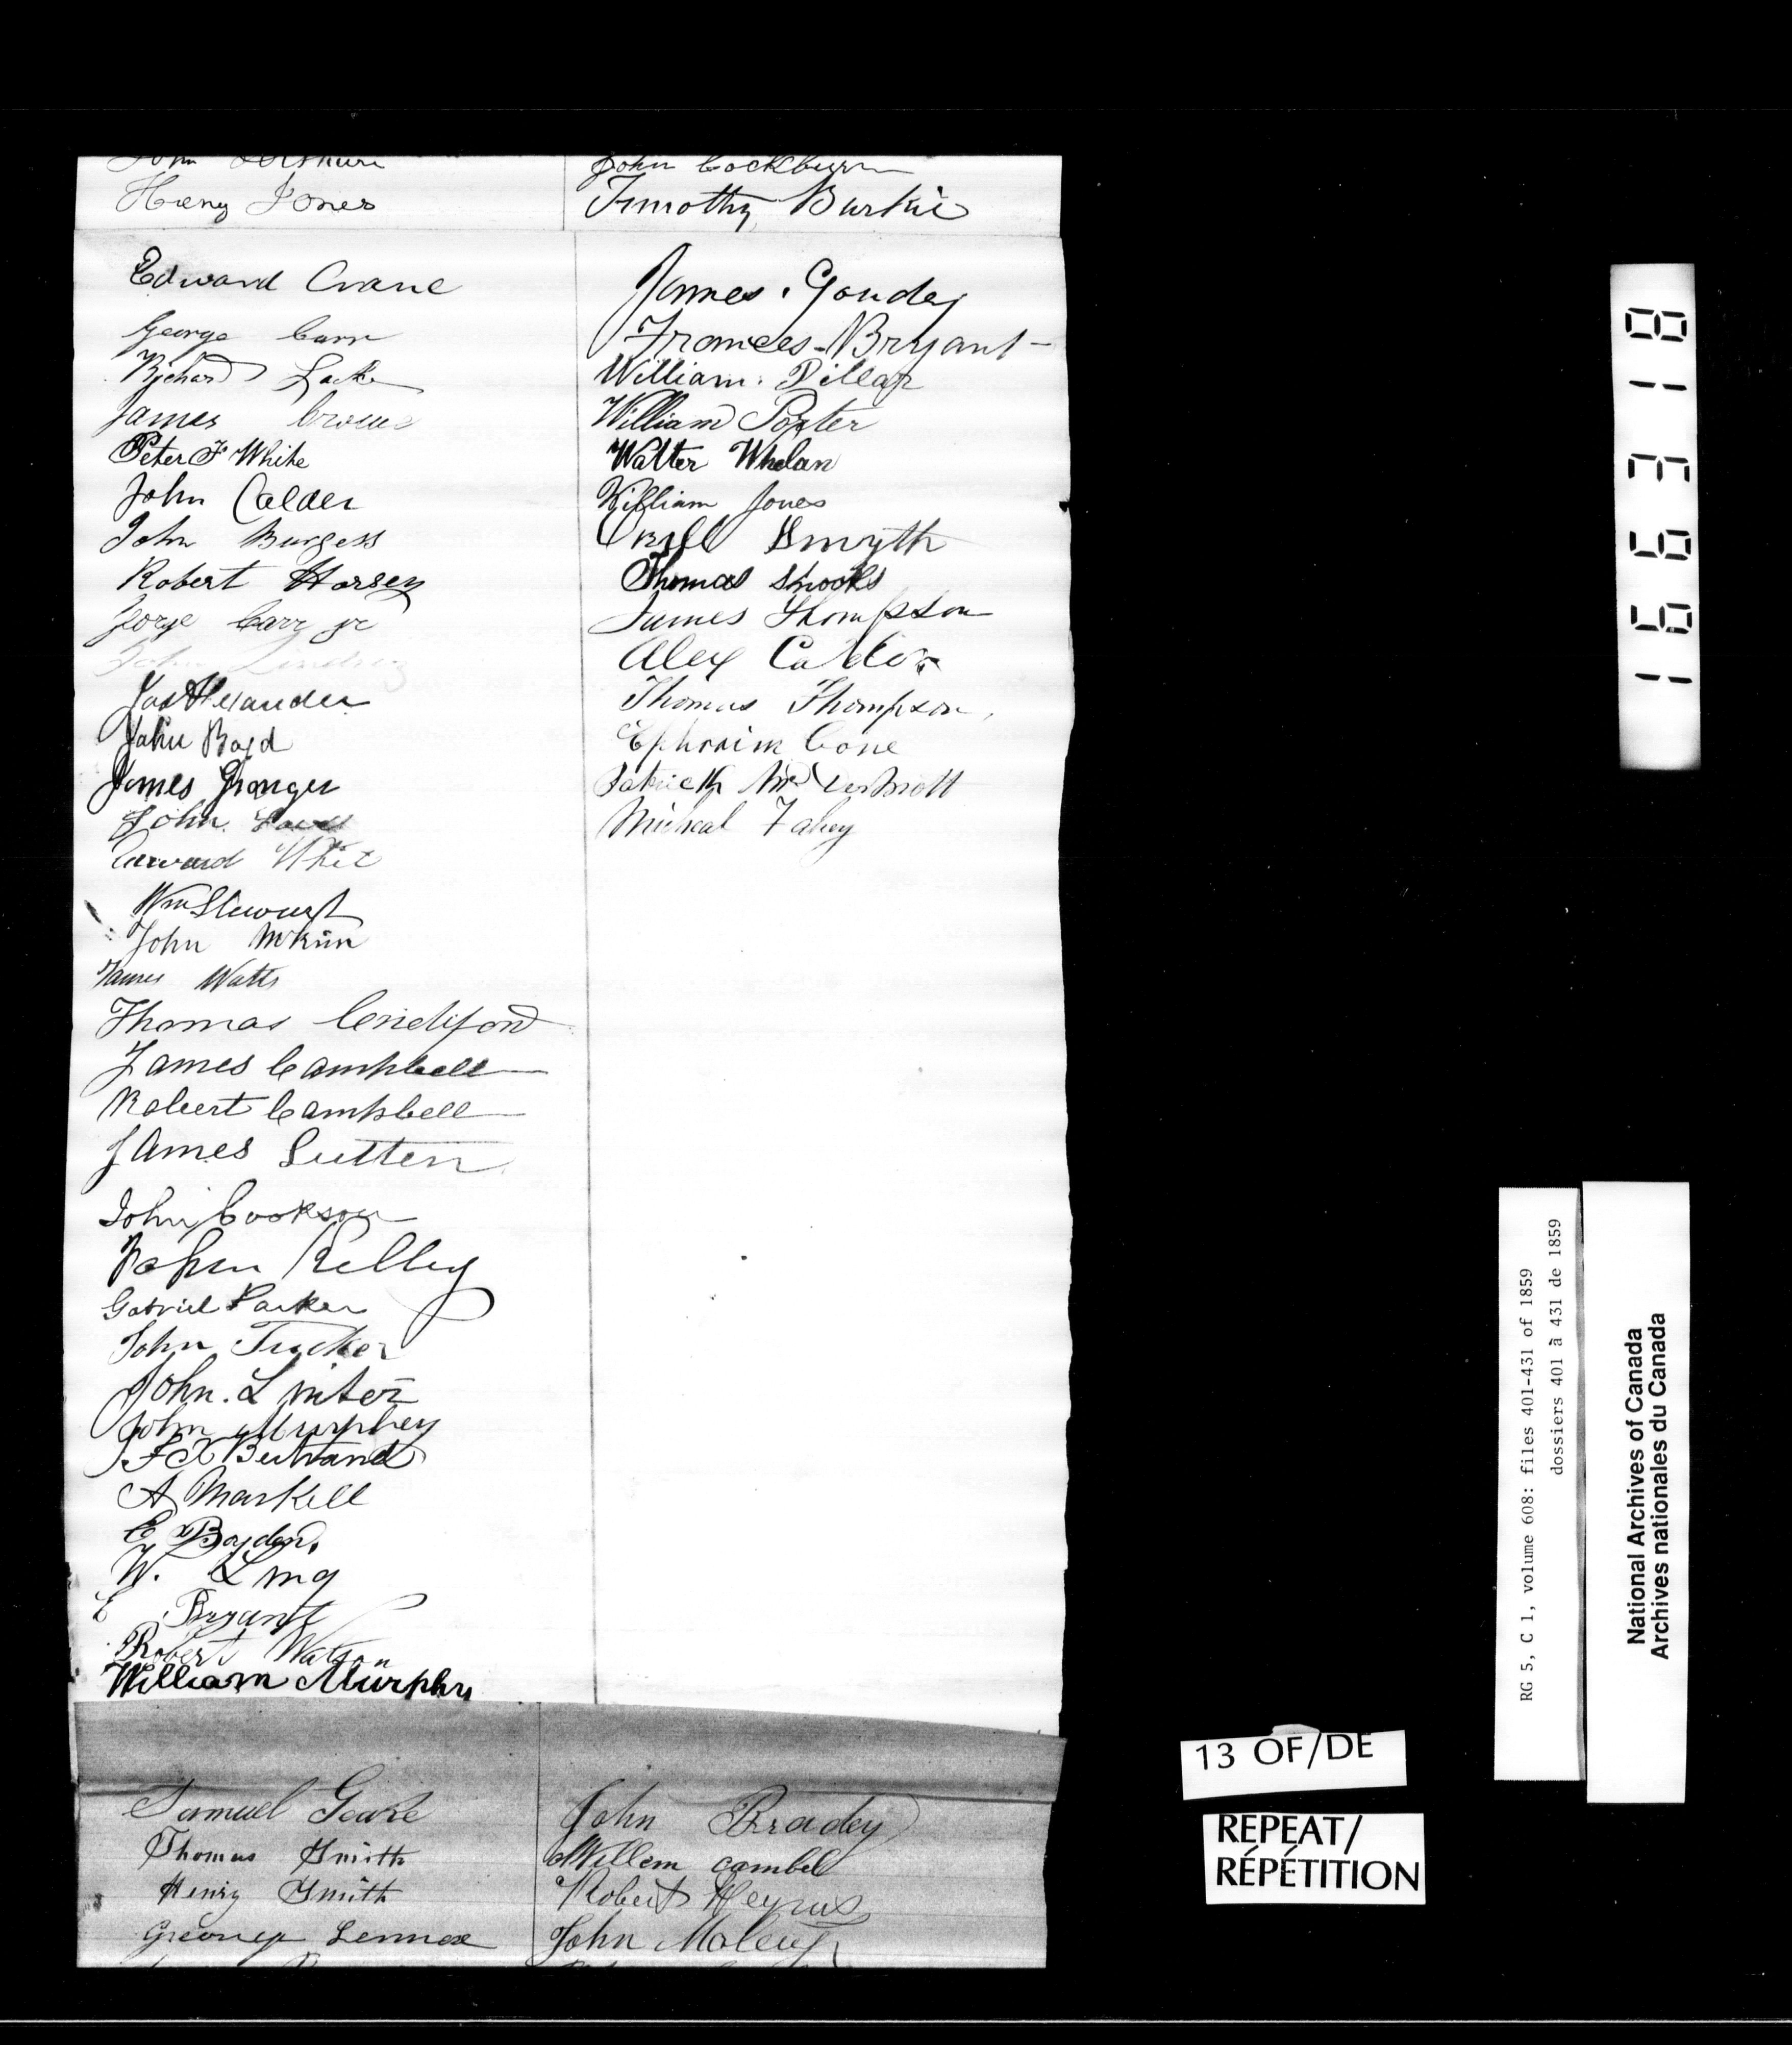 John
Henry Jones
Edward Crane
George Carr
Richard Lacke
James Crowe
Peter F White
John Calder
John Burgess
Robert Horsey
Jorge Carr jr
John Lindsay
Jas Alexander
John Boyd
James Granger
John
Edward White
Wm Stewart
John McKim
James Watts
Thomas
James Campbell
Robert Campbell
James Sutten
John Cookson
John Kelley
Gabriel Parker
John Tucker
John. Linter
John Murphey
F X Bertrand
A Markell
E Boyden.
W. Ling
E Bryant
Robert Watson
William Murphy
John Cockburn
Timothy Burkie
James. Goudey
Frances Bryant
William. Dillar
William Porter
Walter Whelan
William Jones
Smyth
Thomas Snooks
James Thompson
Alex Calder
Thomas Thompson,
Ephraim Cone
Patrick McDermott
Micheal Fahey
Samuel Geake
Thomas Smith
Henry Smith
Greorge Lennox
John Bradey
Willem cambel
Robert
John
166318
RG 5, C 1, volume 608: files 401-431 of 1859
dossiers 401 à 431 de 1859
National Archives of Canada
Archives nationales du Canada
13 OF/DE
REPEAT/
RÉPÉTITION